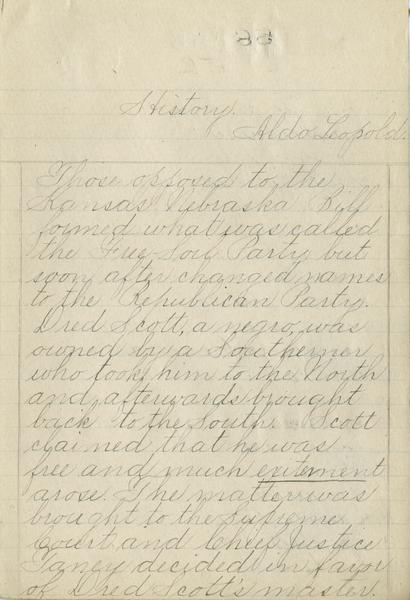 88
History.
Aldo Leopold.
Those opposed to the
Kansas Nebraska Bill
formed what was called
the Free-Soil Party but
soon after changed names
to the Republican Party.
Dred Scott, a negro, was
owned by a Southerner
who took him to the North
and afterwards brought
back to the South. Scott
claimed that he was
free and much exitement
arose. The matter was
brought to the Supreme
Court and Chief Justice
Taney decided in favor
of Dred Scott's master.